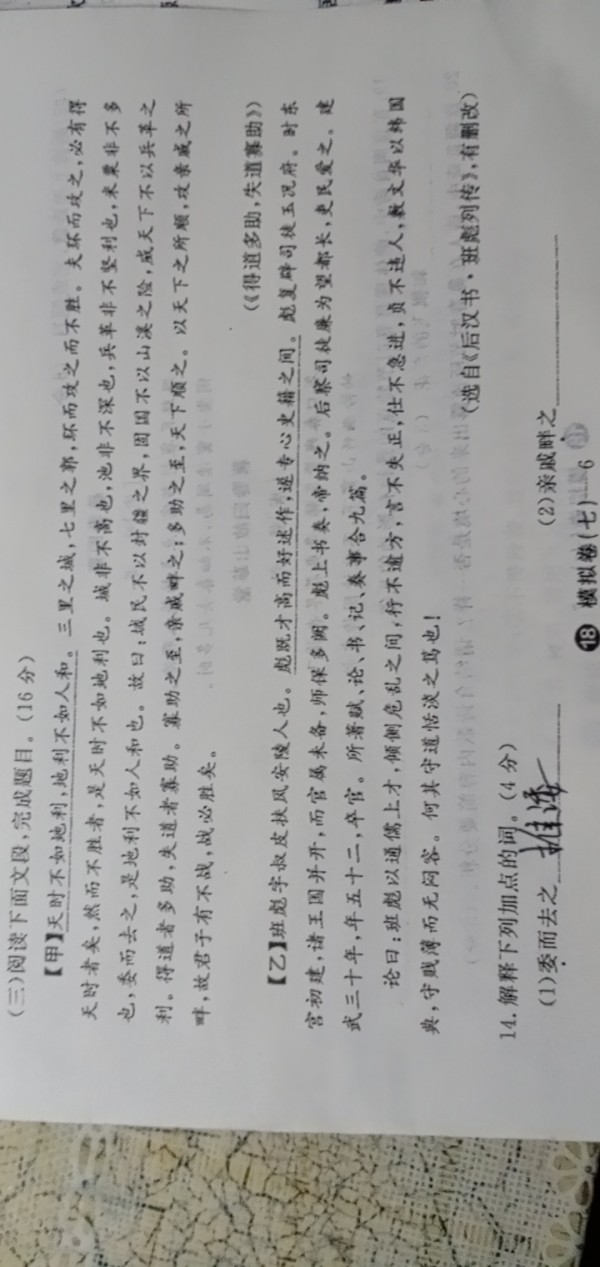 (三)阅读下面文段,完成题目。(16分)
【甲】天时不如地利,地利不如人和。三里之城,七里之郭,环而攻之而不胜。夫环而攻之,必有得
天时者矣,然而不胜者,是天时不如地利也。城非不高也,池非不深也,兵革非不坚利也,米粟非不多
也,委而去之,是地利不如人和也。故曰:域民不以封疆之界,固国不以山溪之险,威天下不以兵革之
利。得道者多助,失道者寡助。寡助之至,亲戚畔之;多助之至,天下顺之。以天下之所顺,攻亲戚之所
畔,故君子有不战,战必胜矣。
(《得道多助,失道寡助》)
【乙】班彪字叔皮扶风安陵人也。彪既才高而好述作,遂专心史籍之间。彪复辟司徒玉况府。时东
宫初建,诸王国并开,而官属未备,师保多阙。彪上书奏,帝纳之。后察司徒廉为望都长,吏民爱之。建
武三十年,年五十二,卒官。所著赋、论、书、记、奏事合九篇。
论曰:班彪以通儒上才,倾侧危乱之间,行不逾方,言不失正,仕不急进,贞不违人,敷文华以纬国
典,守贱薄而无闷容。何其守道恬淡之笃也!
(选自《后汉书·班彪列传》,有删改)
14.解释下列加点的词。(4分)
(1)委而去之
(2)亲戚畔之
18 模拟卷(七)—6